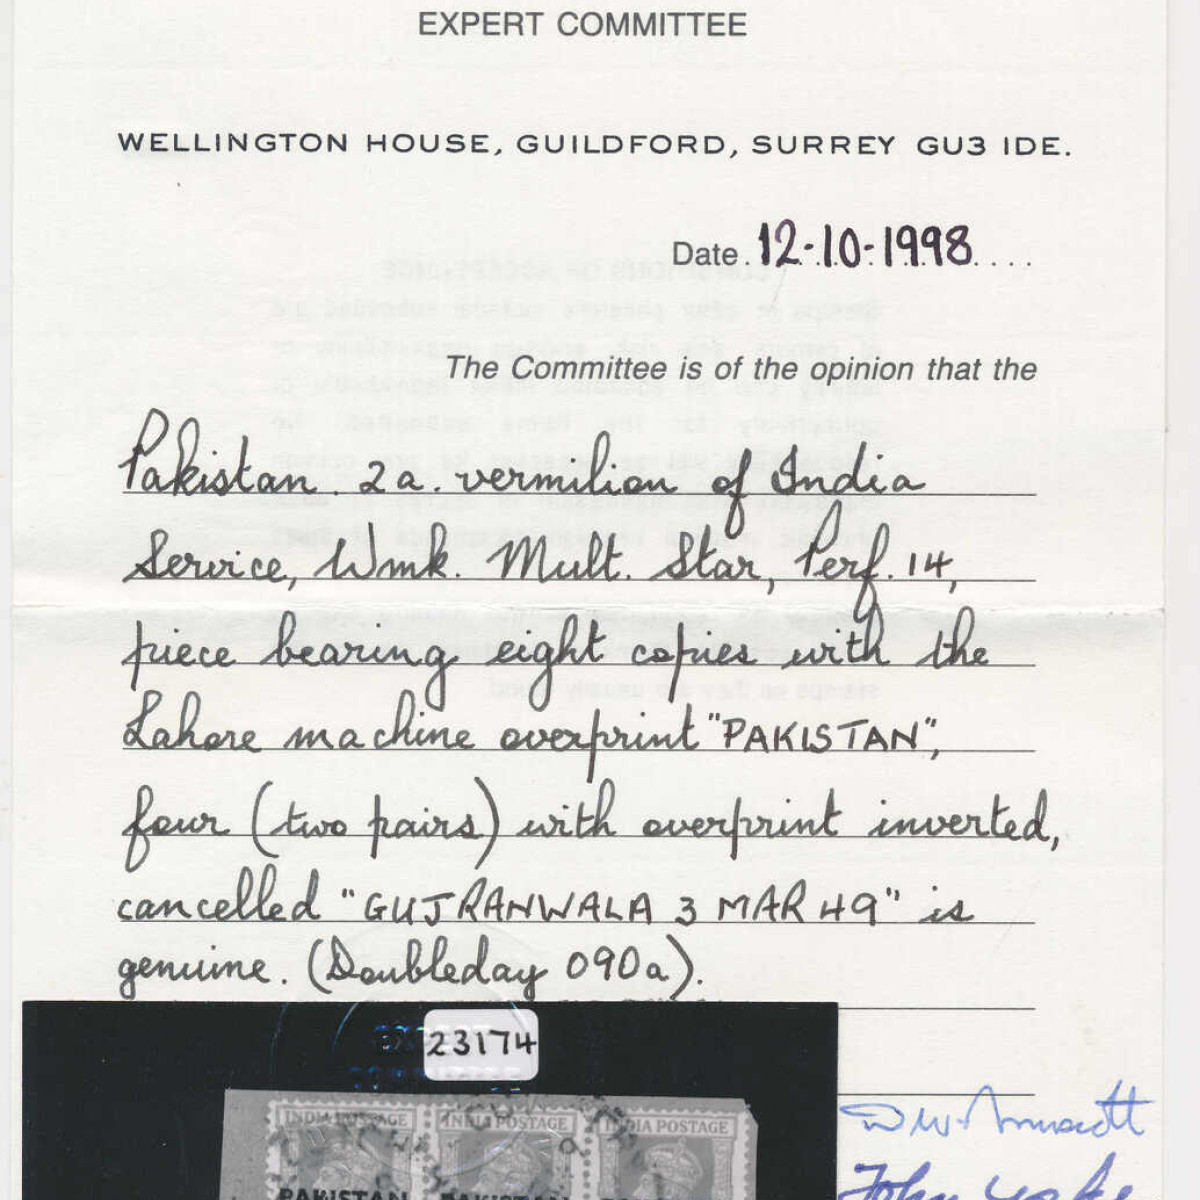 EXPERT COMMITTEE
WELLINGTON HOUSE, GUILDFORD, SURREY GU3 1DE.
Date. 12-10-1998. . . . .
The Committee is of the opinion that the
Pakistan 2a. vermilion of India
Service, Wmk. Mult. Star, Perf. 14,
piece bearing eight copies with the
Lahore machine overprint "PAKISTAN",
four (two pairs) with overprint inverted,
cancelled "GUJRANWALA 3 MAR 49" is
genuine. (Doubleday 090a).
23174
INDIA POSTAGE INDIA POSTAGE INDIA POSTAGE
PAKISTAN PAKISTAN
John